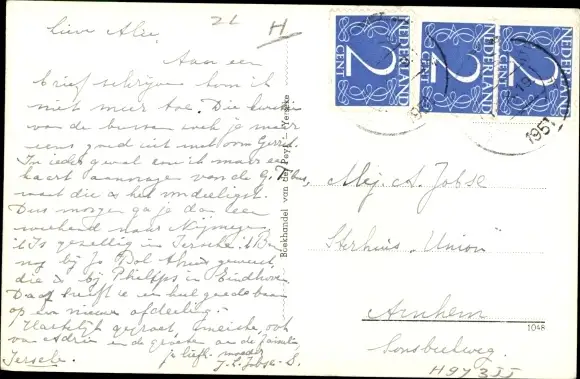 21
H
Lieve Alie.
Aan een
brief schrijven kom ik
niet meer toe. Die
van de bussen zoek je maar
eens goed uit met oom Gerrit.
In ieder geval zou ik maar een
kaart aanvragen van de G.T.
want die is het voordeeligst.
Dus morgen ga je dan een
weekend naar Nijmegen
't Is gezellig in Yerseke. 'k Ben
nog bij Jo Dol thuis geweest,
die is bij Philips in Eindhoven.
Daar heeft ie een heel goede baan
op een nieuwe afdeeling.
Hartelijk gegroet, ook
van Adrie en de groeten aan de familie
je liefh. moeder
Yerseke. J. Jobse-S.
Boekhandel van der Peyl - Yerseke
NEDERLAND
2
CENT
NEDERLAND
2
CENT
NEDERLAND
2
CENT
1951
Mej. A. Jobse
Sterhuis „Union"
Arnhem
Sonsbeekweg.
1048
H973II